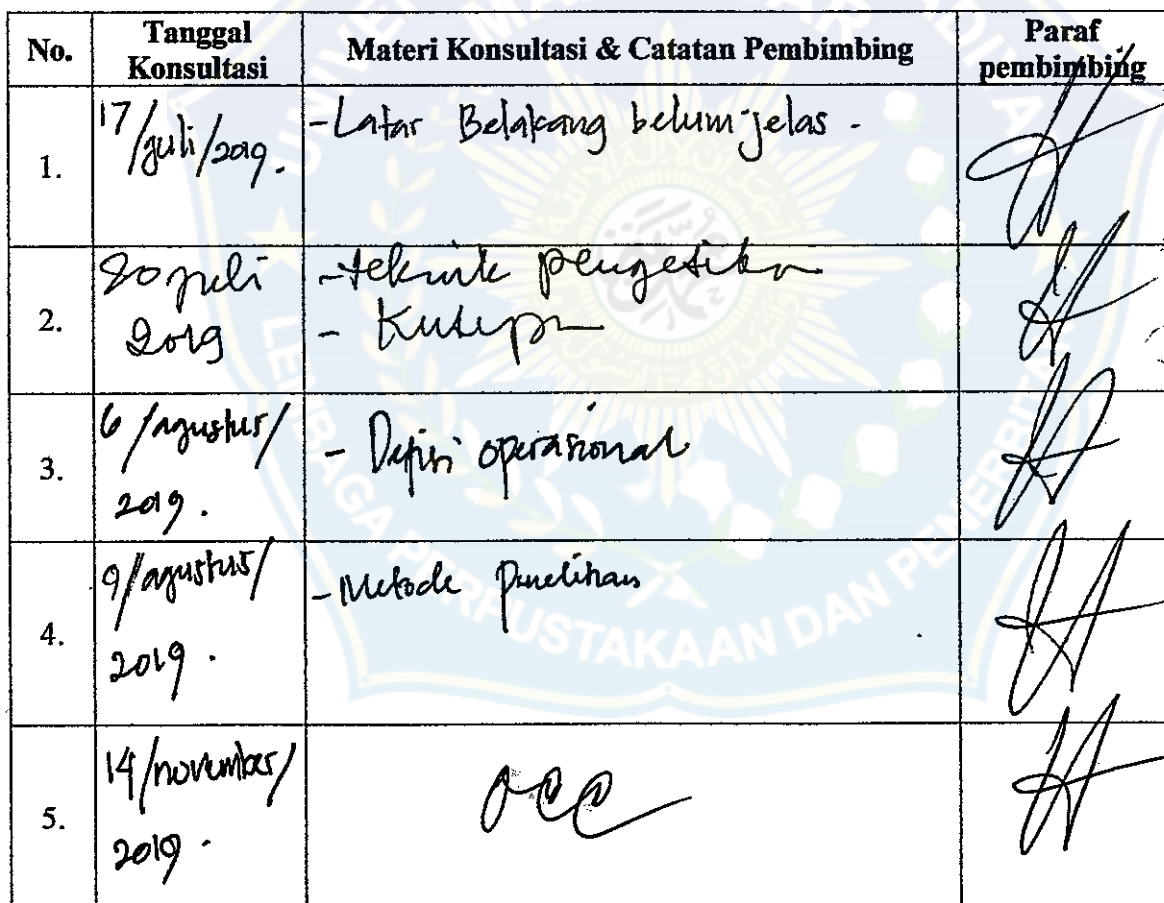 No. Tanggal Konsultasi Materi Konsultasi & Catatan Pembimbing Paraf pembimbing
1. 17/juli/2019. -Latar Belakang belum jelas.
2. 20 juli 2019 -teknik pengetikan
- Kutipan
3. 6/agustus/2019. - Defisi operasional
4. 9/agustus/2019. -Metode Penelitian
5. 14/november/2019. acc
LEMBAGA PERPUSTAKAAN DAN PENERBITAN